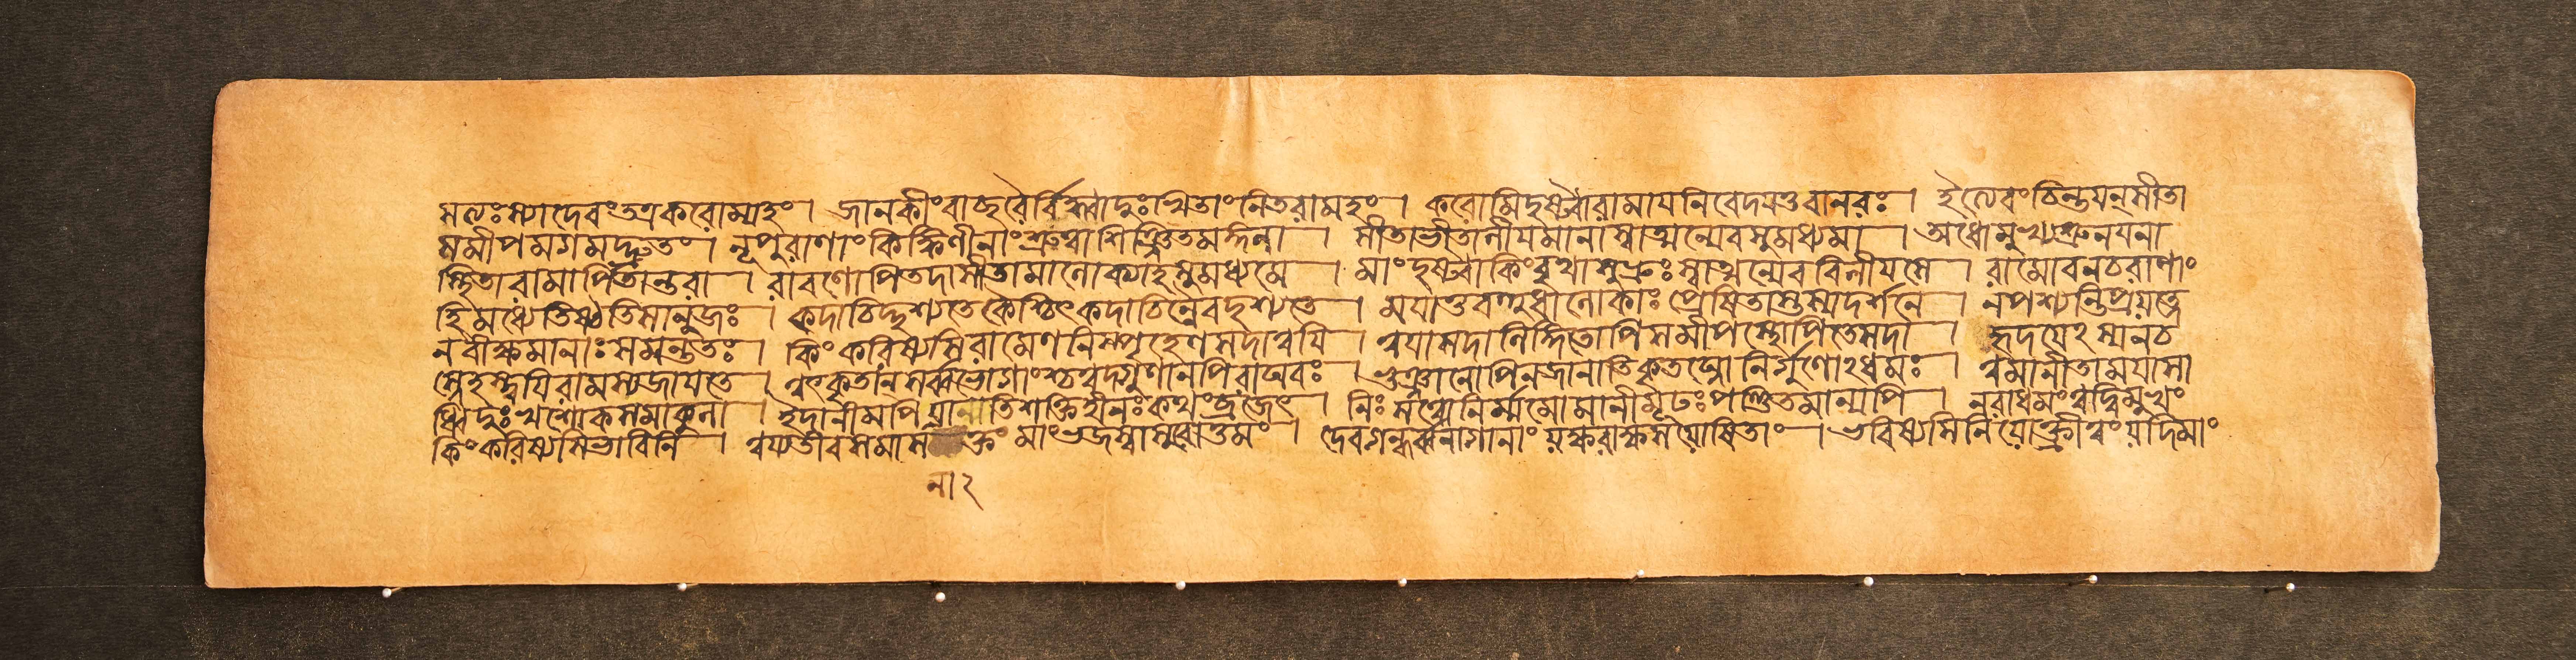 সত্যঃস্যাদেবংতত্রকরোম্যহং। জানকীংবাক্শরৈর্বিদ্ধ্বাদুঃখিতাংনিতরামহং। করোমিদৃষ্ট্বারামাযনিবেদযতুবানরঃ। ইত্যেবংচিন্তযন্সীতা
সমীপমগমদ্দ্রুতং। নূপুরাণাংকিঙ্কিণীনাংশ্রুত্বাশিঞ্জিতমঙ্গনা। সীতাভীতালীযমানাস্বাত্মন্যেবসুমধ্যমা। অধোমুখ্যশ্রুনযনা
স্থিতারামার্পিতান্তরা। রাবণোপিতদাসীতামালোক্যাহসুমধ্যমে। মাংদৃষ্ট্বাকিংবৃথাসুভ্রুঃস্বাত্মন্যেববিলীযসে। রামোবনচরাণাং
হিমধ্যেতিষ্ঠতিসানুজঃ। কদাচিদ্দৃশ্যতেকৈশ্চিৎকদাচিন্নৈবদৃশ্যতে। মযাতুবহুধালোকাঃপ্রেষিতাস্তস্যদর্শনে। নপশ্যন্তিপ্রযত্নে
নবীক্ষমানাঃসমন্ততঃ। কিংকরিষ্যসিরামেণনিস্পৃহেণসদাত্বযি। ত্বযাসদালিঙ্গিতোপিসমীপস্থোপিতেসদা। হৃদযেঽস্যনচ
স্নেহস্ত্বযিরামস্যজাযতে। ত্বৎকৃতান্সর্ব্বভোগাংশ্চত্বদ্গুণানপিরাঘবঃ। ভুঞ্জানোপিনজানাতিকৃতঘ্নোনির্গুণোঽধমঃ। ত্বমানীতামযাসা
ধ্বিদুঃখশোকসমাকুলা। ইদানীমপিনাযাতিশক্তিহীনঃকথংব্রজেৎ। নিঃসত্ত্বোনির্ম্মমোমানীমূঢঃপণ্ডিতমান্যপি। নরাধমংত্বদ্বিমুখং
কিংকরিষ্যসিভাবিনি। ত্বয্যতীবসমাসক্তংমাংভজস্বাসুরোত্তমং। দেবগন্ধর্ব্বনাগানাংযক্ষরাক্ষসযোষিতাং। ভবিষ্যসিনিযোক্ত্রীত্বংযদিমাং